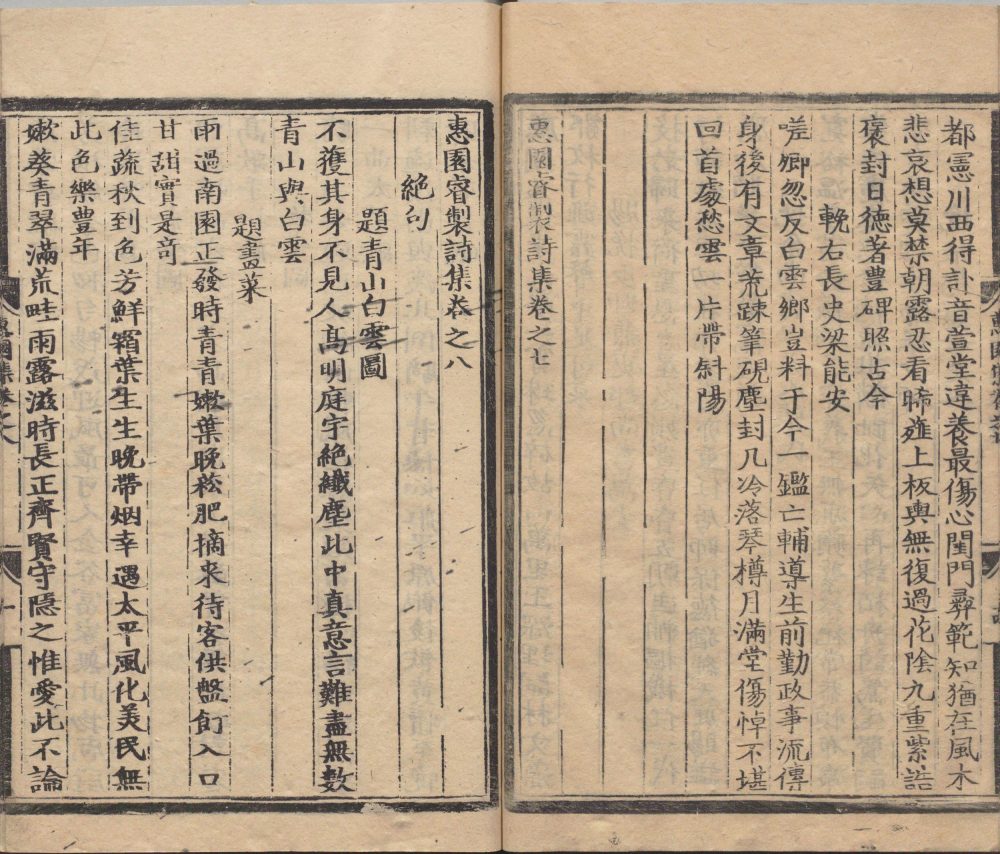 都憲川西得訃音萱堂違養最傷心閨門彛範知猶在風木
悲哀想莫禁朝露忍看晞薤上板輿無復過花陰九重紫誥
褒封日德著豊碑照古今
輓右長史梁能安
嗟卿忽反白雲鄉豈料于今一鑑亡輔導生前勤政事流傳
身後有文章荒踈筆硯塵封几冷落琴樽月滿堂傷悼不堪
回首處愁雲一片帶斜陽
惠園睿製詩集卷之七
惠園睿製詩集卷之八
絶句
題青山白雲圖
不獲其身不見人髙明庭宇絶纖塵此中真意言難盡無數
青山與白雲
題畫菜
雨過南園正發時青青嫩葉晚菘肥摘来待客供盤飣入口
甘甜實是竒
佳蔬秋到色芳鮮霜葉生生晚帶烟幸遇太平風化美民無
此色樂豊年
嫩葵青翠滿荒畦雨露滋時長正齊賢守隱之惟愛此不論